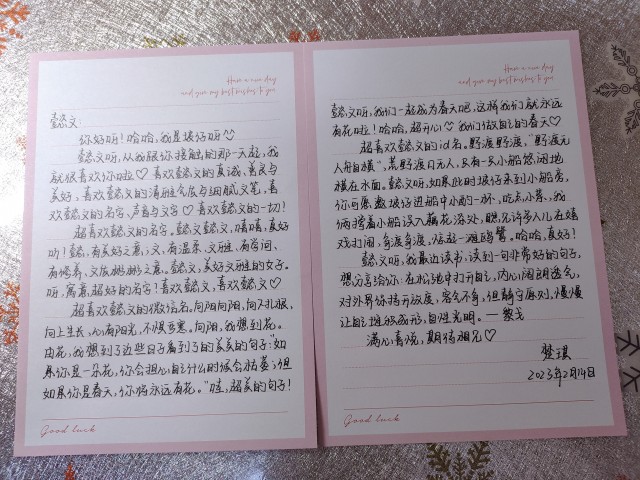 Have a nice day
and give my best wishes to you
懿文：
你好呀！哈哈，我是坡仔呀♡
懿文呀，从我跟你接触的那一天起，我
就很喜欢你啦♡喜欢懿文的真诚、善良与
美好，喜欢懿文的清雅气质与细腻文笔，喜
欢懿文的名字、声音与文字♡喜欢懿文的一切！
超喜欢懿文的名字。懿文懿文，嘻嘻，真好
听！懿，有美好之意；文，有温柔、文雅、有学问、
有修养，文质彬彬之意。懿文，美好文雅的女子。
呀，寓意超好的名字！喜欢懿文，喜欢懿文♡
超喜欢懿文的微信名。向阳向阳，向下扎根，
向上生长，心有阳光，不惧寒。向阳，我想到花。
由花，我想到了这些日子看到了的美美的句子：如
果你是一朵花，你会担心自己什么时候会枯萎；但
如果你是春天，你将永远有花。“哇，超美的句子！
Good luck
Have a nice day
and give my best wishes to you
懿文呀，我们一起成为春天吧，这样我们就永远
有花啦！哈哈，超开心♡我们做自己的春天♡
超喜欢懿文的id名。野渡野渡，“野渡无
人舟自横”，荒野渡口无人，只有一只小船悠闲地
横在水面。懿文呀，如果此时坡仔来到小船旁，
你可愿邀坡仔进船中小酌一杯，吃点小菜，我
俩撑着小船误入藕花深处，瞧见许多人儿在嬉
戏打闹，争渡争渡，惊起一滩鸥鹭。哈哈，真好！
懿文呀，我最近读书，读到一句非常好的句子，
想分享给你：在松弛中打开自己，内心阔朗透气，
对外界保持开放度，客气不争，但静守原则，慢慢
让自己堆放成形，自性光明。—黎戈
满心喜悦，期待相见♡
楚琪
2023年2月14日
Good luck